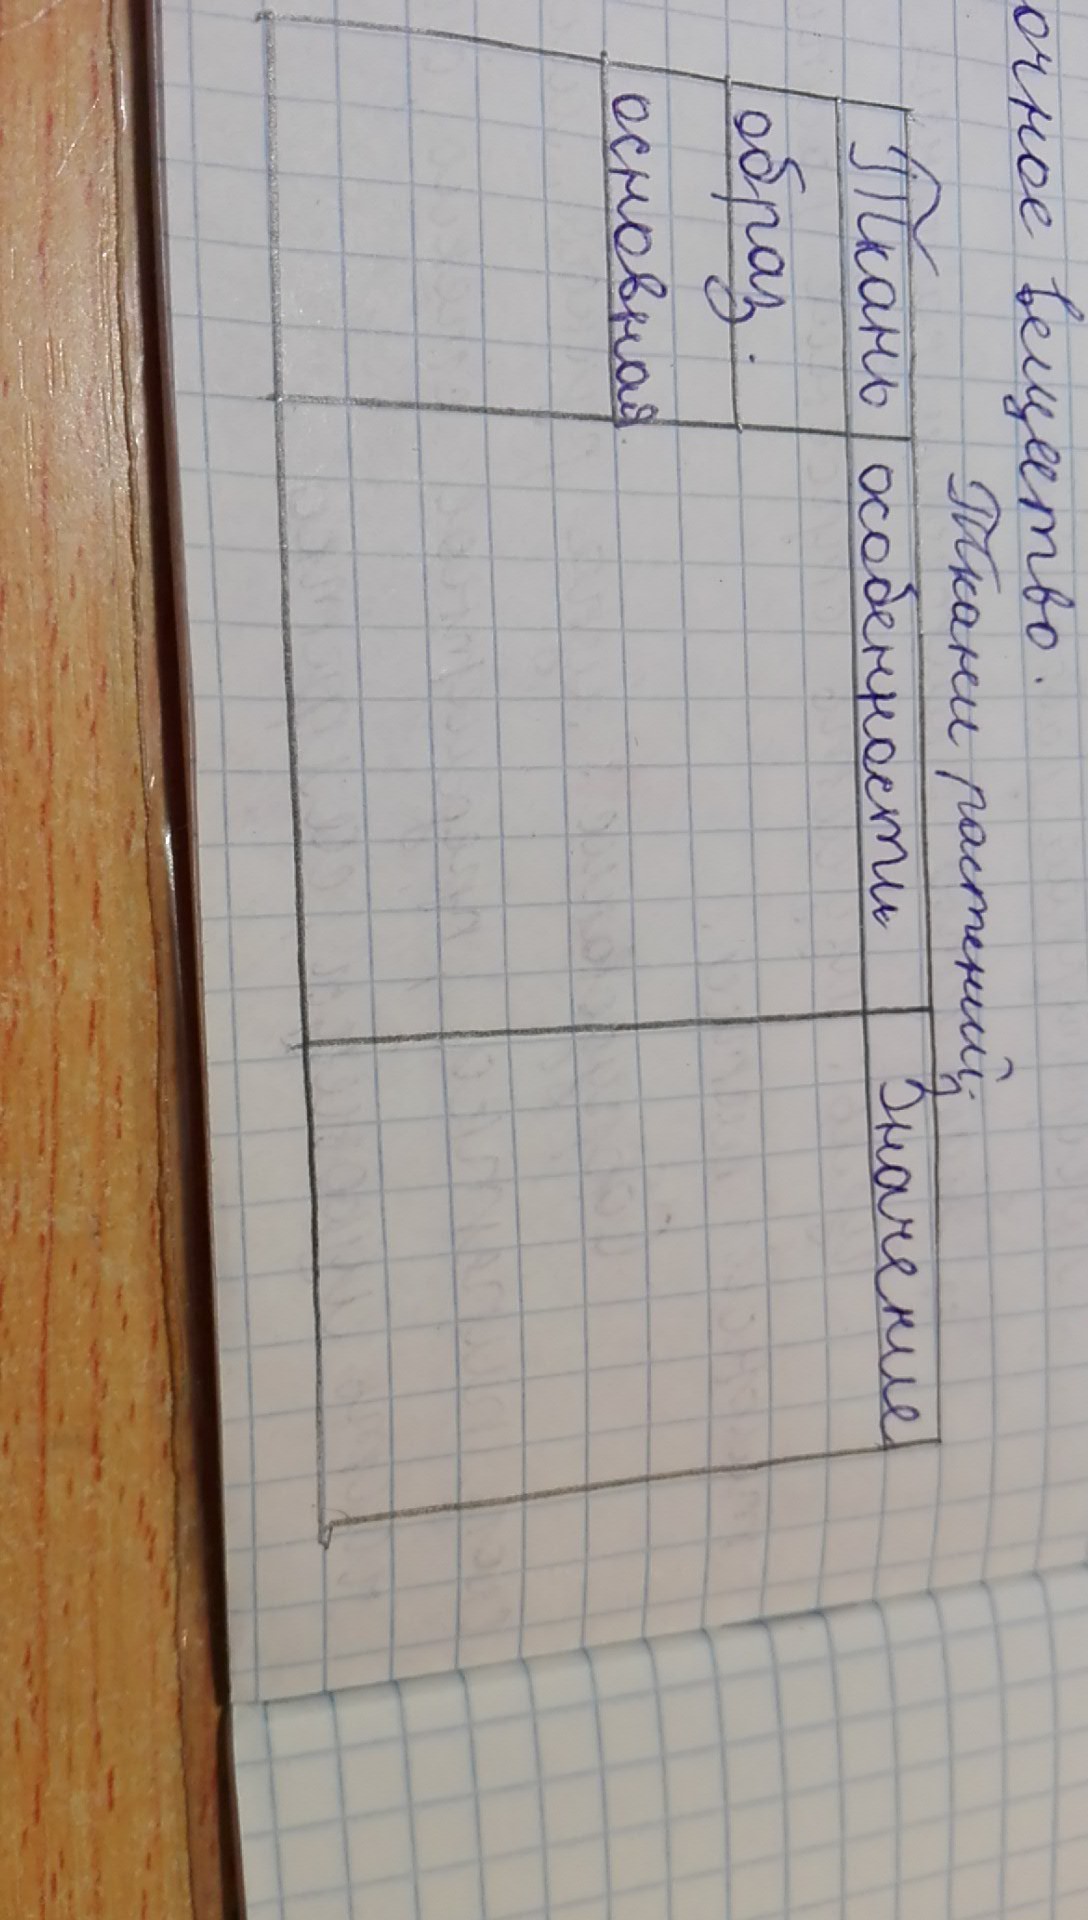 очное вещество.
Ткани растений.
Ткань особенность Значение
образ.
основная